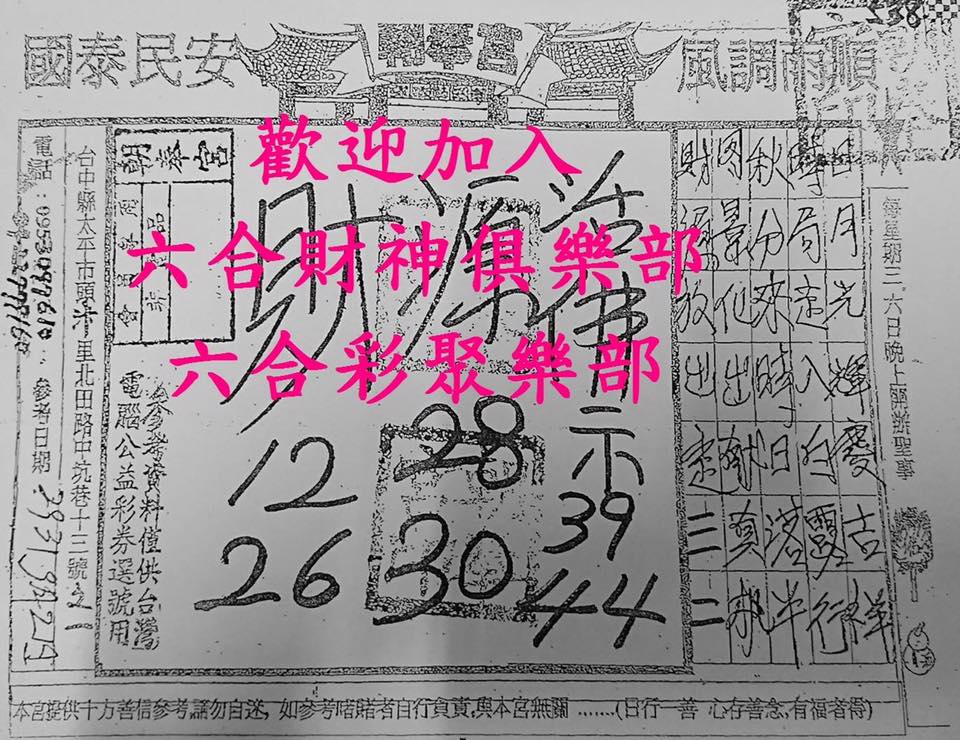 風調雨順
國泰民安
朝泰宮
歡迎加入
六合財神俱樂部
六合彩聚樂部
濟佛示
39
44
財源
28
30
12
26
日月光輝慶吉祥
時局走入白露行
秋分來時日落半
財源放出走三二
每星期三、六日晚上興辦聖事
參考資料僅供台灣
電腦公益彩券選號用
台中縣太平市頭汴里北田路中坑巷十二號之1
電話:
參考日期
本宮提供十方善信參考請勿自迷,如參考賭賭者自行負責,與本宮無關 .......(日行一善 心存善念,有福者得)